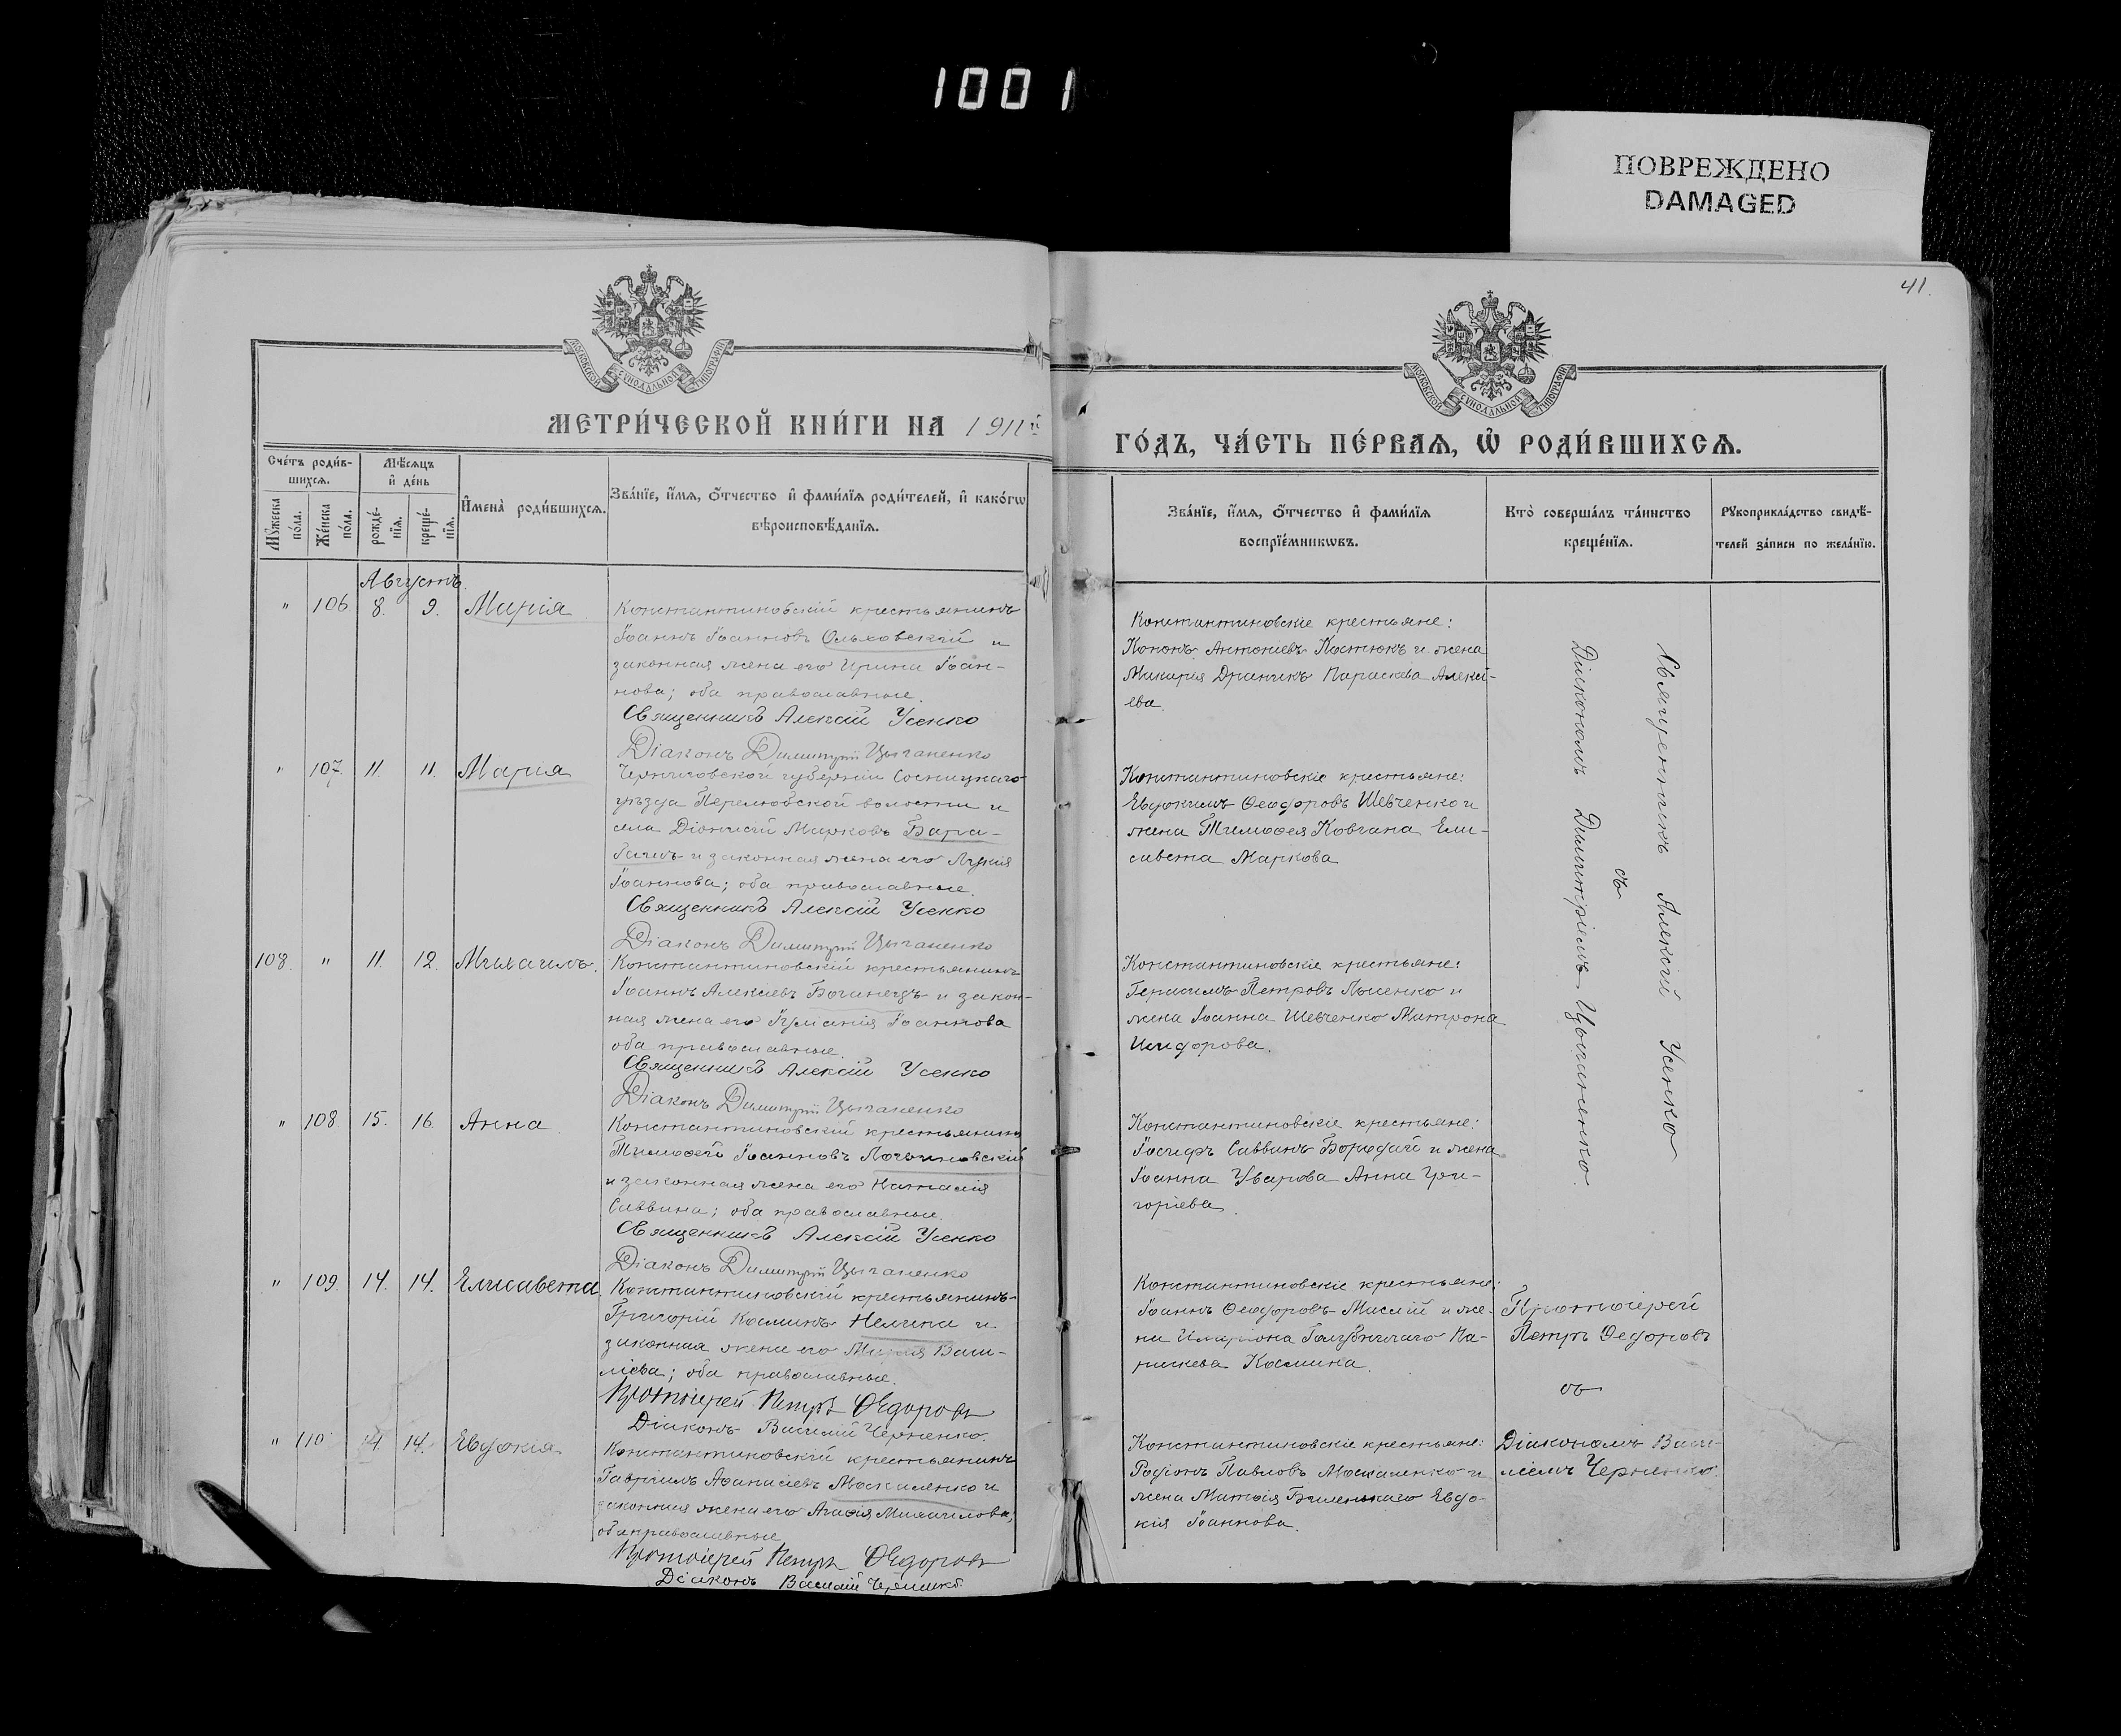 1001
ПОВРЕЖДЕНО
DAMAGED
41.
МОСКОВСКОЙ СѴНОДАЛЬНОЙ ТИПОГРАФІИ
МОСКОВСКОЙ СѴНОДАЛЬНОЙ ТИПОГРАФІИ
МЕТРИ́ЧЕСКОЙ КНИ́ГИ НА 1911й
ГО́ДЪ, ЧА́СТЬ ПЕ́РВАѦ, Ѡ҆ РОДИ́ВШИХСѦ.
Сче́тъ роди́в-
шихсѧ.
Мꙋ́жеска
по́ла.
Же́нска
по́ла.
Мѣ́сѧцъ
и҆ де́нь
рожде́-
нїѧ.
креще́-
нїѧ.
И҆мена̀ роди́вшихсѧ.
Зва́нїе, и҆́мѧ, ѻ҆́тчество и҆ фами́лїѧ роди́телей, и҆ како́гѡ
вѣроисповѣ́данїѧ.
Зва́нїе, и҆́мѧ, ѻ҆́тчество и҆ фами́лїѧ
воспрїе́мникѡвъ.
Кто̀ соверша́лъ та́инство
креще́нїѧ.
Рꙋкоприкла́дство свидѣ́-
телей за́писи по жела́нїю.
Августъ
" 106 8. 9. Марія
Константиновскій крестьянинъ
Іоаннъ Іоанновъ Ольховскій и
законная жена его Ирина Іоан-
нова; оба православные.
Священникъ Алексій Усенко
Діаконъ Димитрій Цыганенко
Константиновскіе крестьяне:
Кононъ Антоніевъ Костюкъ и жена
Макарія Дранчикъ Параскева Алексі-
ева.
Священникъ Алексій Усенко
съ
Діакономъ Димитріемъ Цыганенко.
" 107. 11. 11. Марія
Черниговской губерніи Сосницкаго
уѣзда Перелюбской волости и
села Діонисій Марковъ Бара-
башъ и законная жена его Лукія
Іоаннова; оба православные.
Священникъ Алексій Усенко
Діаконъ Димитрій Цыганенко
Константиновскіе крестьяне:
Евдокимъ Ѳеодоровъ Шевченко и
жена Тимоѳея Ковгана Ели-
савета Маркова
108. " 11. 12. Михаилъ.
Константиновскій крестьянинъ
Іоаннъ Алексіевъ и закон-
ная жена его Іуліанія Іоаннова
оба православные.
Священникъ Алексій Усенко
Діаконъ Димитрій Цыганенко
Константиновскіе крестьяне:
Герасимъ Петровъ Лысенко и
жена Іоанна Шевченко Матрона
Исидорова.
" 108. 15. 16. Анна
Константиновскій крестьянинъ
Тимоѳей Іоанновъ
и законная жена его Наталія
Саввина; оба православные.
Священникъ Алексій Усенко
Діаконъ Димитрій Цыганенко
Константиновскіе крестьяне:
Іосифъ Саввинъ Бородай и жена
Іоанна Уварова Анна Гри-
горіева.
" 109. 14. 14. Елисавета.
Константиновскій крестьянинъ
Григорій Косминъ Нелина и
законная жена его Марія Васи-
ліева; оба православные.
Протоіерей Петръ Ѳедоровъ
Діаконъ Василій Черненко.
Константиновскіе крестьяне:
Іоаннъ Ѳеодоровъ и же-
на Иларіона Па-
раскева Космина.
Протоіерей
Петръ Ѳедоровъ
съ
Діакономъ Васи-
ліемъ Черненко.
" 110 14. 14. Евдокія
Константиновскій крестьянинъ
Гавріилъ Аѳанасіевъ Москаленко и
законная жена его Агаѳія Михаилова;
оба православные
Протоіерей Петръ Ѳедоровъ
Діаконъ Василій Черненко.
Константиновскіе крестьяне:
Родіонъ Павловъ Москаленко и
жена Матѳія Біленькаго Евдо-
кія Іоаннова.